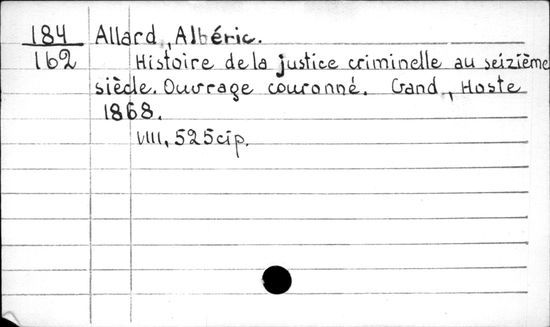 184 Allard, Albéric.
162 Histoire de la justice criminelle au seizième
siècle. Ouvrage couronné. Gand, Hoste
1868.
VIII, 525 cip.